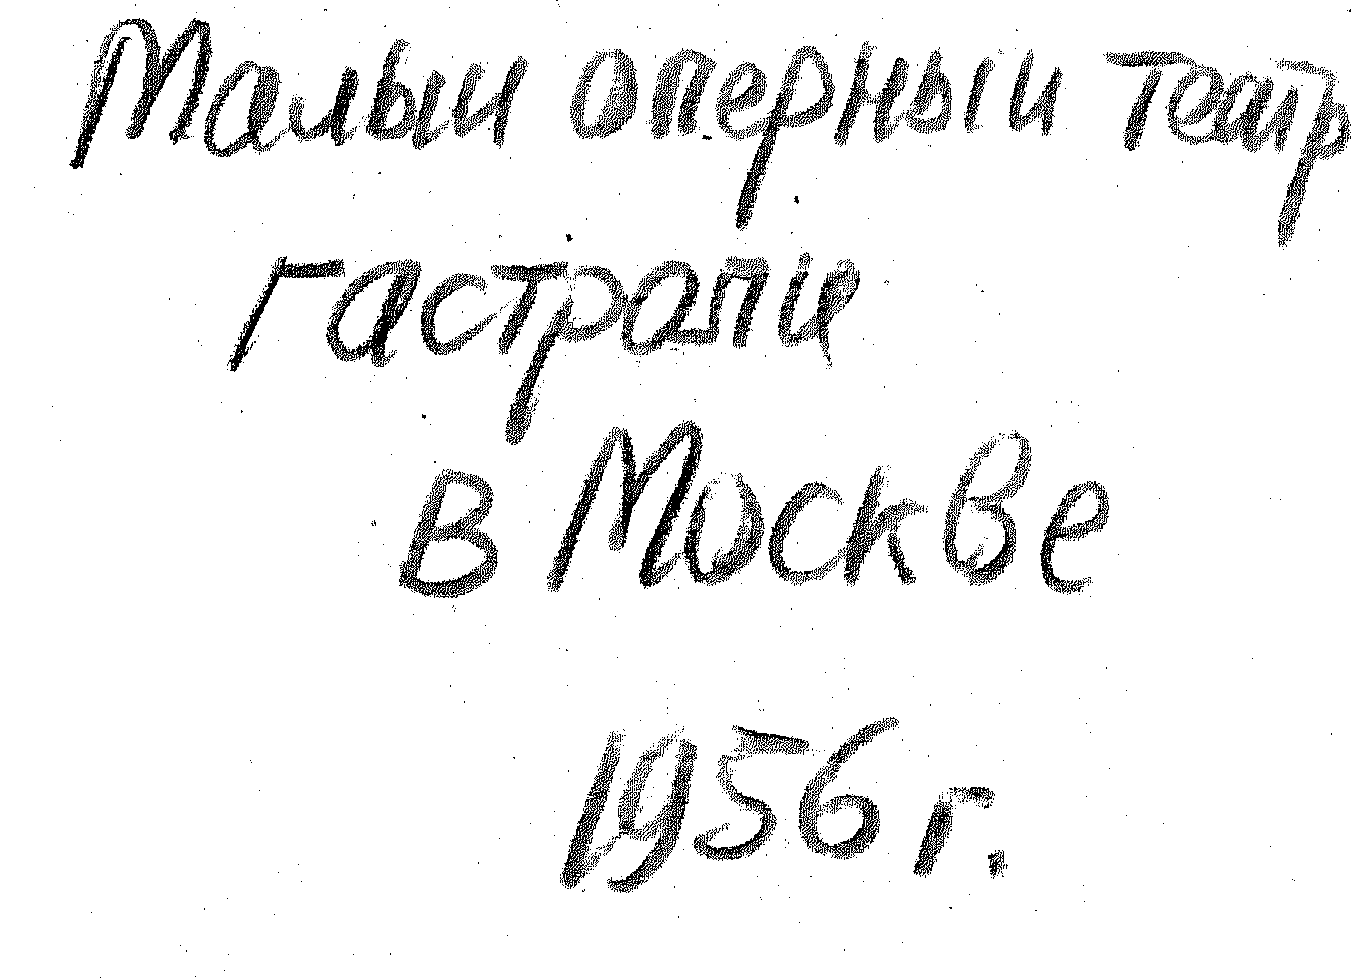 Малыи оперныи театр
гастроли
в Москве
1956 г.